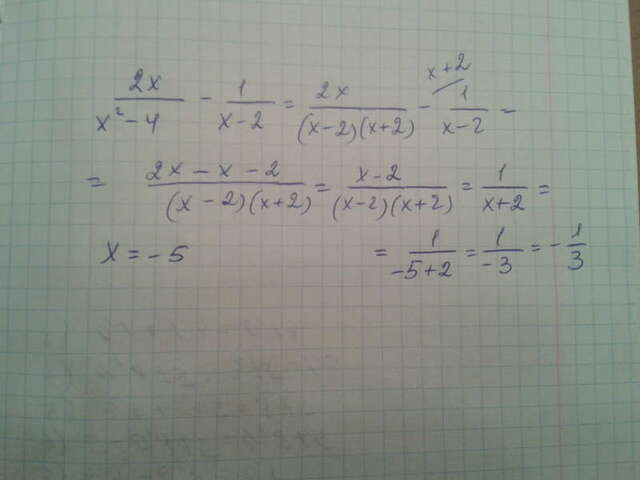 2x/(x² - 4) - 1/(x - 2) = 2x/((x-2)(x+2)) - x+2/ 1/(x-2) =
= (2x - x - 2)/((x - 2)(x+2)) = (x-2)/((x-2)(x+2)) = 1/(x+2) =
x = -5 = 1/(-5+2) = 1/(-3) = -1/3